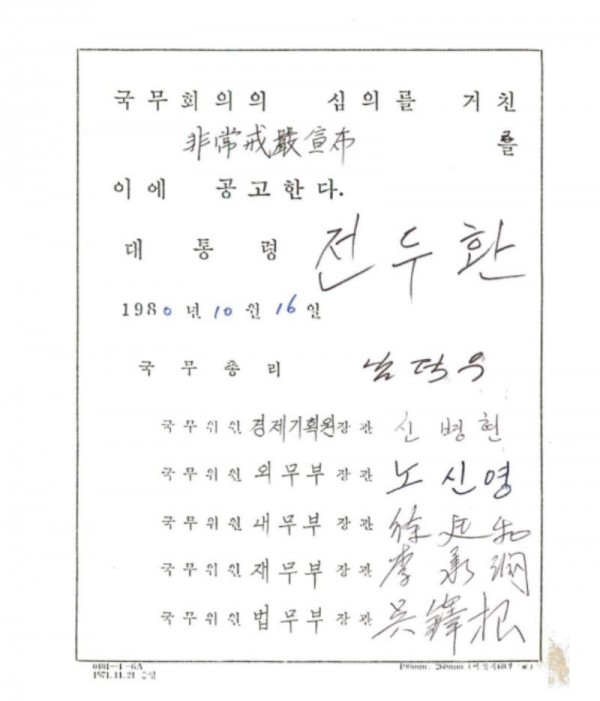 국무회의의 심의를 거친
非常戒嚴宣布 를
이에 공고한다.
대통령 전두환
1980년 10월 16일
국무총리 남덕우
국무위원 경제기획원장관 신병현
국무위원 외무부장관 노신영
국무위원 내무부장관 徐廷和
국무위원 재무부장관 李承潤
국무위원 법무부장관 吳鐸根
0401-1-6A
1971.11.21 승인